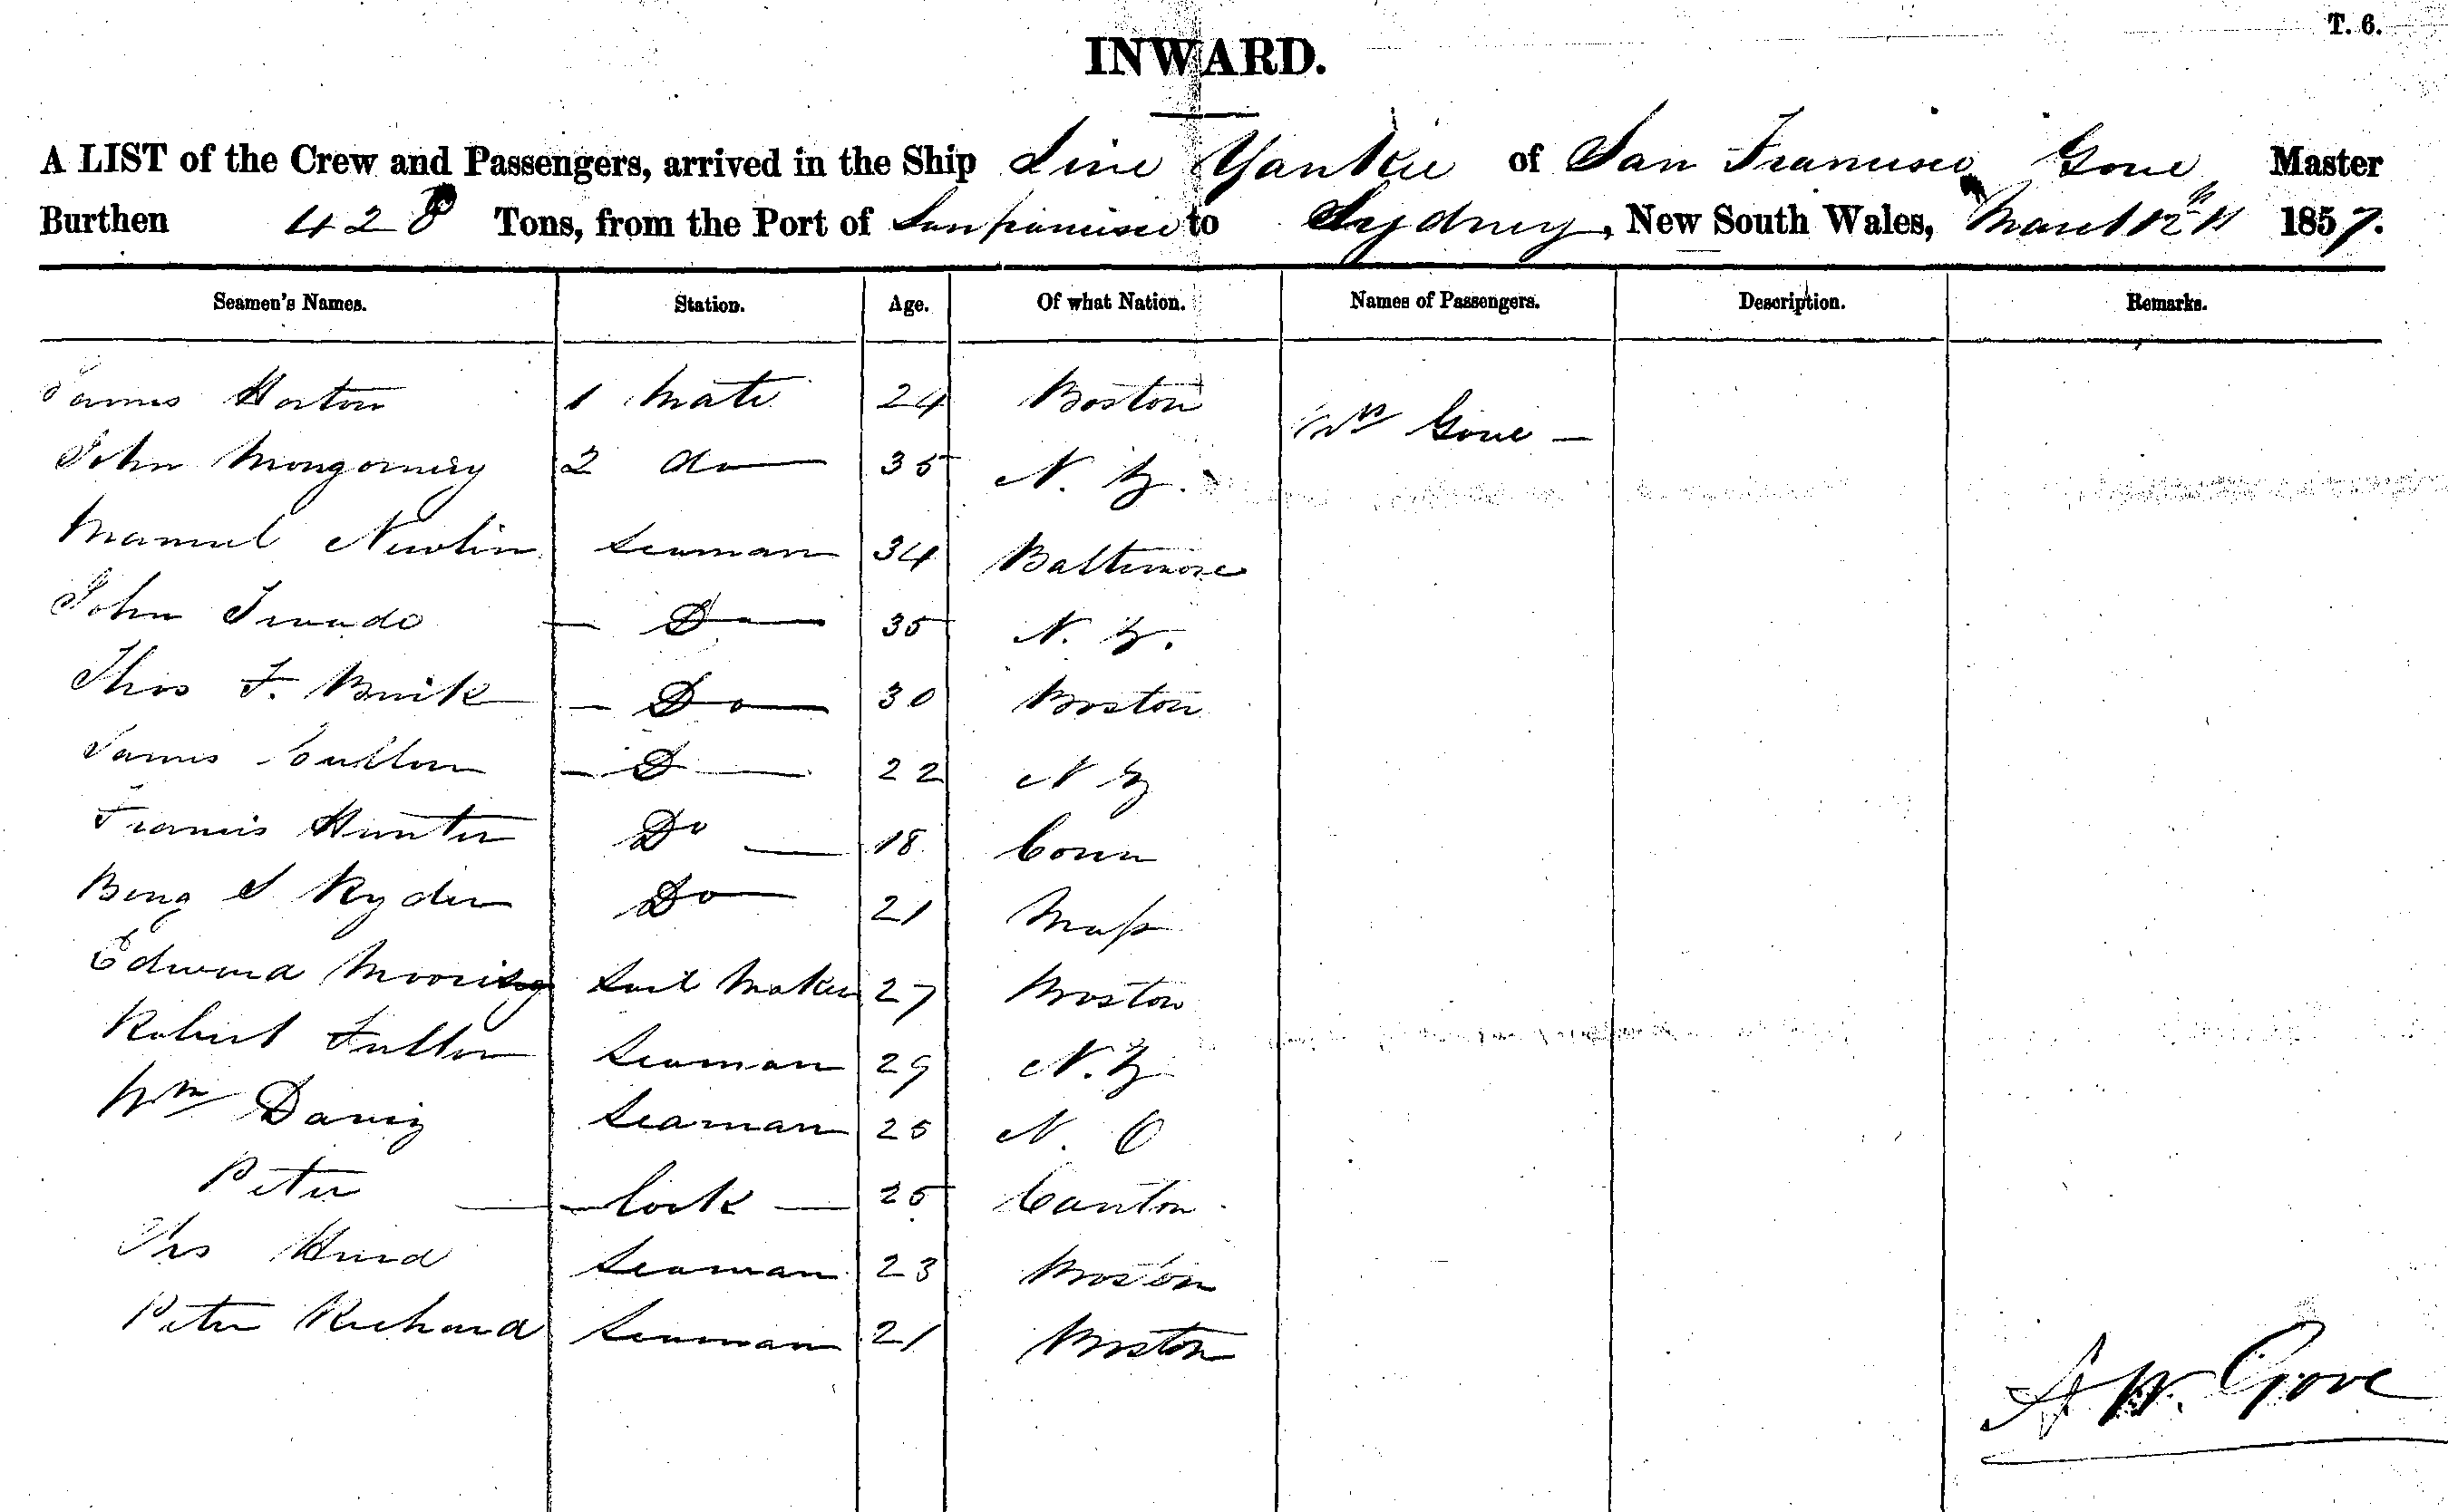 T. 6.
INWARD.
A LIST of the Crew and Passengers, arrived in the Ship Line Yankee of San Francisco Gove Master
Burthen 428 Tons, from the Port of San francisco to Sydney, New South Wales, March 12th 1857.
Seamen's Names. Station. Age. Of what Nation. Names of Passengers. Description. Remarks.
James Horton 1 Mate 24 Boston
Gove —
John Mongomery 2 do 35 N. Y.
Manuel Newlin Seaman 34 Baltimore
John — Do 35 N. Y.
Thos F. — Do 30 Boston
James Cullon — D — 22 N Y
Francis Hunter Do — 18 Conn
Benj S Ryder Do 21 Mass
Edward Sail Maker 27 Boston
Robert Fulton Seaman 29 N. Y
Wm Daviz Seaman 25 N. O
Peter — Cook — 25 Canton
Ths Seaman 23 Boston
Peter Richard Seaman 21 Boston
A W. Gove